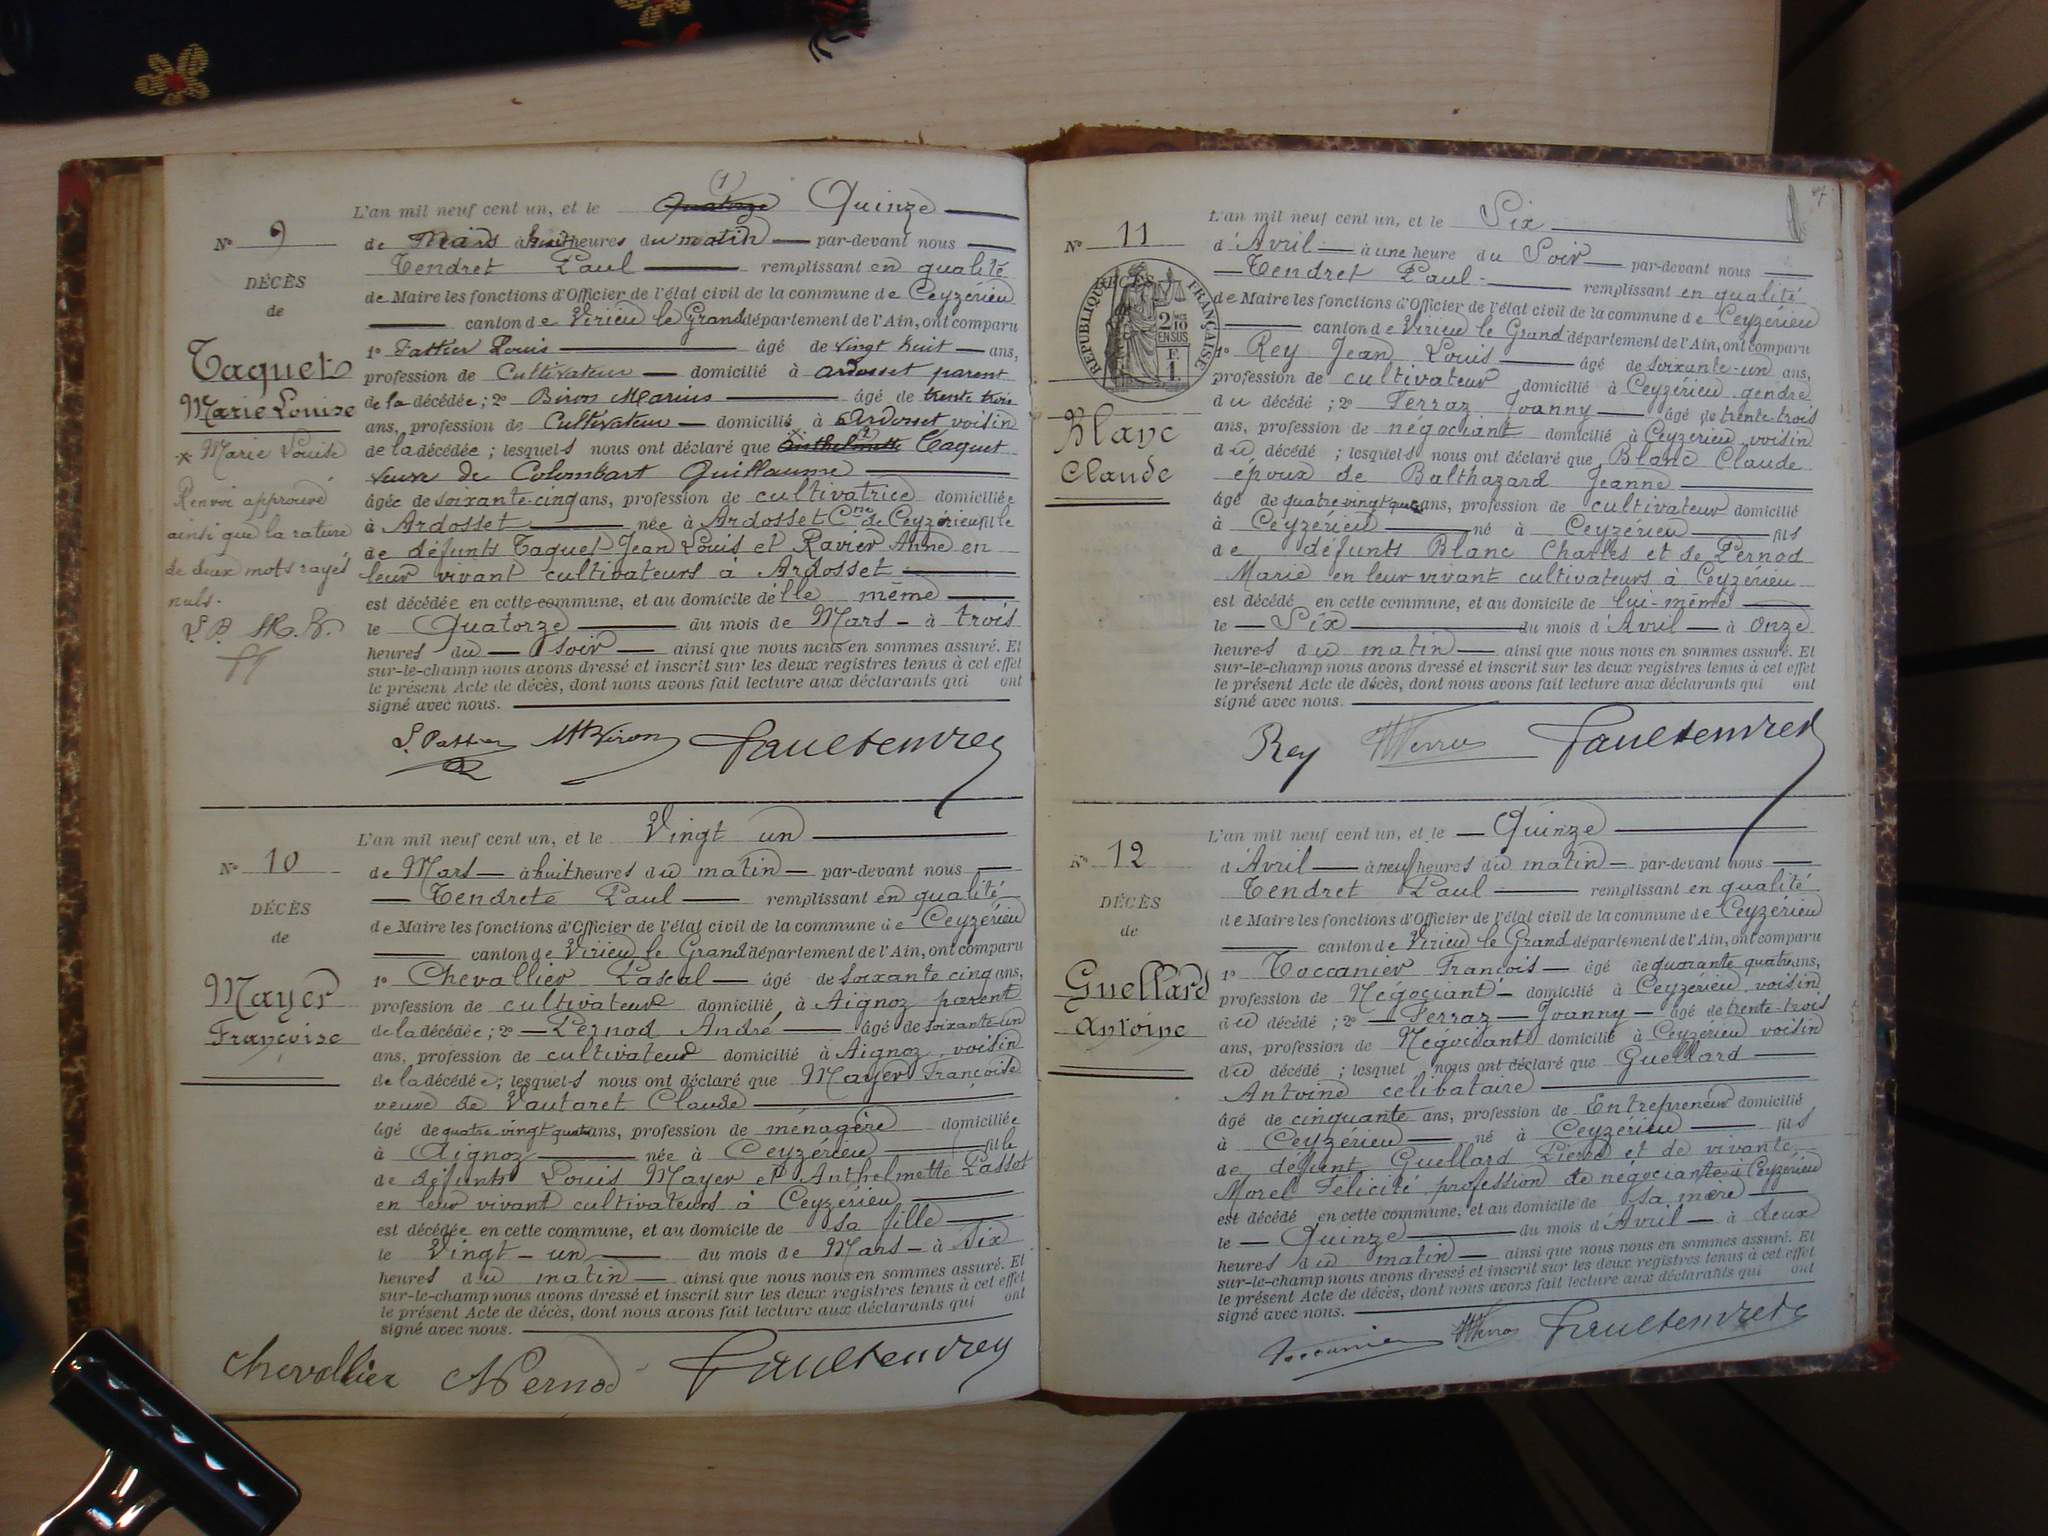 N° 9
DÉCÈS
de
Taquet
Marie Louise
x Marie Louise
Renvoi approuvé
ainsi que la rature
de deux mots rayés
nuls.
(1)
L'an mil neuf cent un, et le Quatorze Quinze
de Mars à huit heures du matin par-devant nous
Tendret Paul remplissant en qualité
de Maire les fonctions d'Officier de l'état civil de la commune de Ceyzérieu
canton de Virieu le Grand département de l'Ain, ont comparu
1° Pattier Louis âgé de vingt huit ans,
profession de Cultivateur domicilié à Ardosset parent
de la décédée ; 2° Biron Marius âgé de trente trois
ans, profession de Cultivateur domicilié à Ardosset voisin
de la décédée ; lesquels nous ont déclaré que Anthelmette Taquet
veuve de Colombart Guillaume
âgée de soixante-cinq ans, profession de cultivatrice domiciliée
à Ardosset née à Ardosset Cne de Ceyzérieu fille
de défunts Taquet Jean Louis et Ravier Anne en
leur vivant cultivateurs à Ardosset
est décédée en cette commune, et au domicile de lle même
le Quatorze du mois de Mars à trois
heures du soir ainsi que nous nous en sommes assuré. Et
sur-le-champ nous avons dressé et inscrit sur les deux registres tenus à cet effet
le présent Acte de décès, dont nous avons fait lecture aux déclarants qui ont
signé avec nous.
L. Pattier M Biron Paul Tendret
N° 10
DÉCÈS
de
Mayer
Françoise
L'an mil neuf cent un, et le Vingt un
de Mars à huit heures du matin par-devant nous
Tendrete Paul remplissant en qualité
de Maire les fonctions d'Officier de l'état civil de la commune de Ceyzérieu
canton de Virieu le Grand département de l'Ain, ont comparu
1° Chevallier Pascal âgé de soixante cinq ans,
profession de cultivateur domicilié à Aignoz parent
de la décédée ; 2° Pernod André âgé de soixante-un
ans, profession de cultivateur domicilié à Aignoz voisin
de la décédée ; lesquels nous ont déclaré que Mayer Françoise
veuve de Vautaret Claude
âgé de quatre vingt quatre ans, profession de ménagère domiciliée
à Aignoz née à Ceyzérieu fille
de défunts Louis Mayer et Anthelmette Passot
en leur vivant cultivateurs à Ceyzérieu
est décédée en cette commune, et au domicile de sa fille
le Vingt-un du mois de Mars à six
heures du matin ainsi que nous nous en sommes assuré. Et
sur-le-champ nous avons dressé et inscrit sur les deux registres tenus à cet effet
le présent Acte de décès, dont nous avons fait lecture aux déclarants qui ont
signé avec nous.
Chevallier A Pernod Paul Tendret
N° 11
DÉCÈS
RÉPUBLIQUE FRANÇAISE
2/10 EN SUS
F. 1
Blanc
Claude
L'an mil neuf cent un, et le Six
d'Avril à une heure du Soir par-devant nous
Tendret Paul remplissant en qualité
de Maire les fonctions d'Officier de l'état civil de la commune de Ceyzérieu
canton de Virieu le Grand département de l'Ain, ont comparu
1° Rey Jean Louis âgé de soixante-un ans,
profession de cultivateur domicilié à Ceyzérieu gendre
du décédé ; 2° Ferraz Joanny âgé de trente-trois
ans, profession de négociant domicilié à Ceyzerieu voisin
du décédé ; lesquels nous ont déclaré que Blanc Claude
époux de Balthazard Jeanne
âgé de quatre vingt ans, profession de cultivateur domicilié
à Ceyzérieu né à Ceyzérieu fils
de défunts Blanc Charles et de Pernod
Marie en leur vivant cultivateurs à Ceyzérieu
est décédé en cette commune, et au domicile de lui-même
le Six du mois d'Avril à onze
heures du matin ainsi que nous nous en sommes assuré. Et
sur-le-champ nous avons dressé et inscrit sur les deux registres tenus à cet effet
le présent Acte de décès, dont nous avons fait lecture aux déclarants qui ont
signé avec nous.
Rey Paul Tendret
N° 12
DÉCÈS
de
Guellard
Antoine
L'an mil neuf cent un, et le Quinze
d'Avril à neuf heures du matin par-devant nous
Tendret Paul remplissant en qualité
de Maire les fonctions d'Officier de l'état civil de la commune de Ceyzérieu
canton de Virieu le Grand département de l'Ain, ont comparu
1° Toccanier François âgé de quarante quatre ans,
profession de Négociant domicilié à Ceyzérieu voisin
du décédé ; 2° Ferraz Joanny âgé de trente-trois
ans, profession de Négociant domicilié à Ceyzérieu voisin
du décédé ; lesquel nous ont déclaré que Guellard
Antoine célibataire
âgé de cinquante ans, profession de Entrepreneur domicilié
à Ceyzérieu né à Ceyzérieu fils
de défunt Guellard Pierre et de vivante
Morel Félicité profession de négociante à Ceyzérieu
est décédé en cette commune, et au domicile de sa mère
le Quinze du mois d'Avril à deux
heures du matin ainsi que nous nous en sommes assuré. Et
sur-le-champ nous avons dressé et inscrit sur les deux registres tenus à cet effet
le présent Acte de décès, dont nous avons fait lecture aux déclarants qui ont
signé avec nous.
Toccanier Paul Tendret